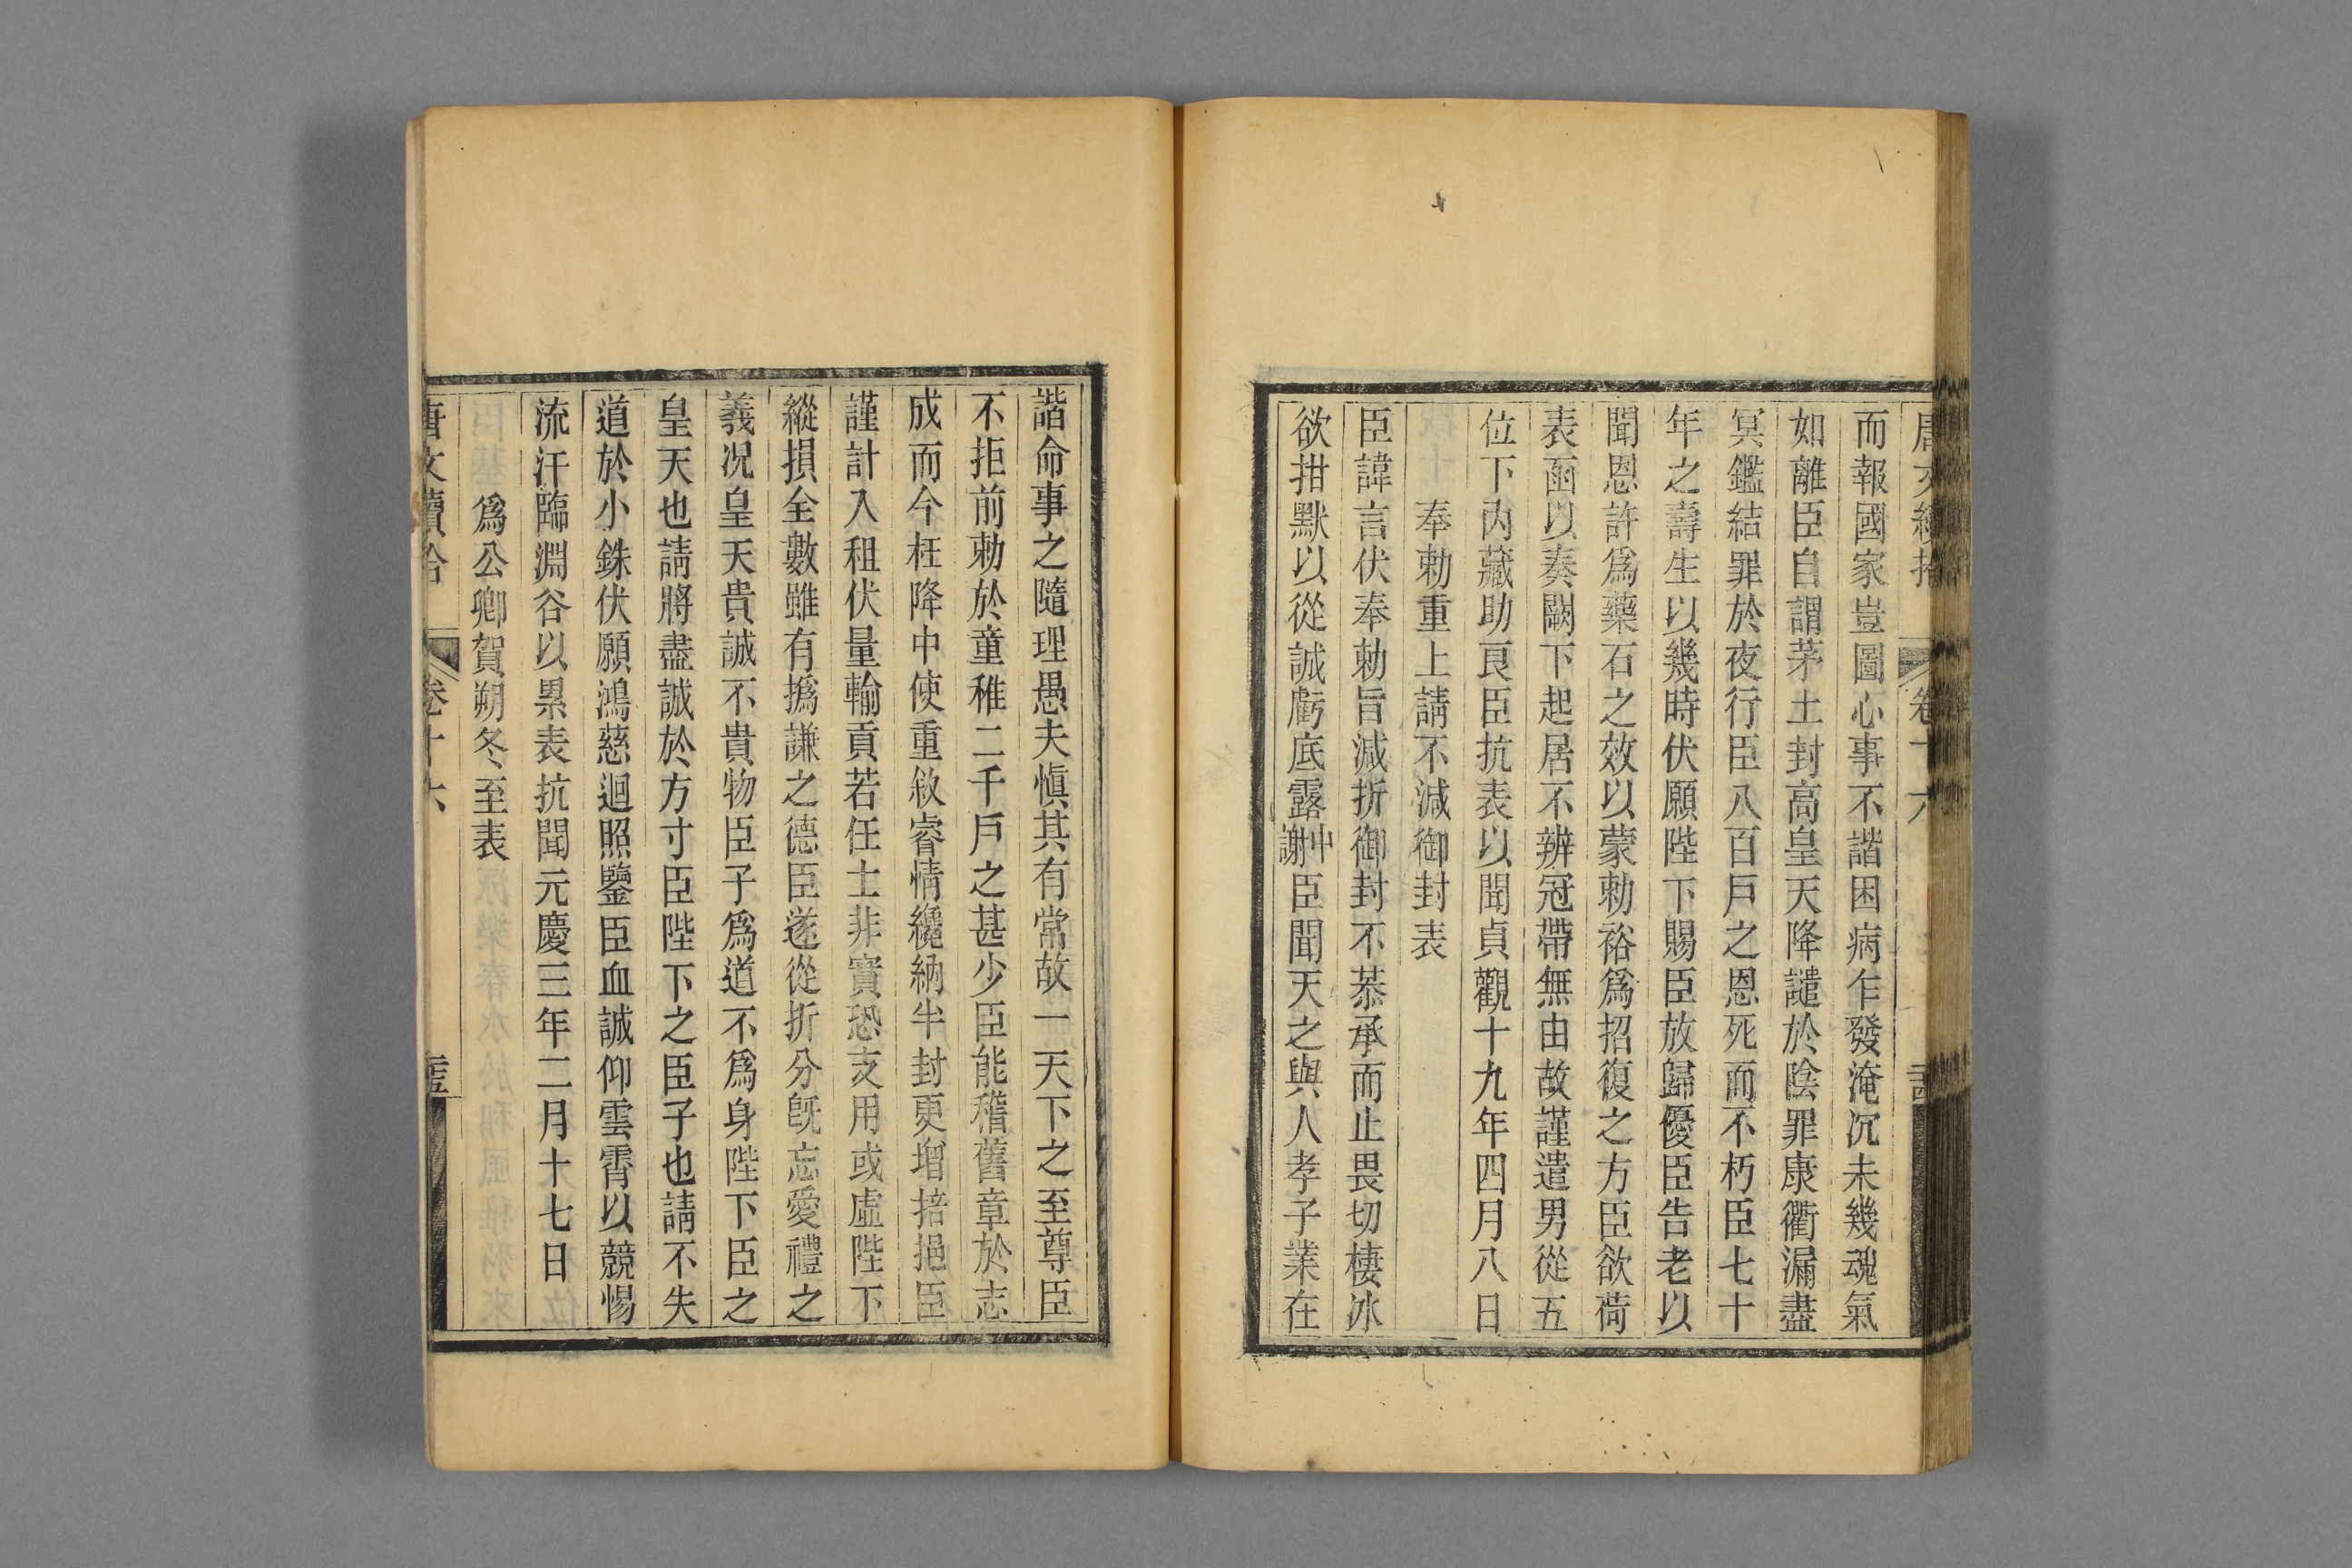 唐文續拾 卷十六
而報國家豈圖心事不諧困病乍發淹沉未幾魂氣
如離臣自謂茅土封高皇天降譴於陰罪康衢漏盡
冥鑑結罪於夜行臣八百戸之恩死而不朽臣七十
年之壽生以幾時伏願陛下賜臣放歸優臣告老以
聞恩許爲藥石之效以蒙勅裕爲招復之方臣欲荷
表函以奏闕下起居不辨冠帶無由故謹遣男從五
位下内藏助良臣抗表以聞貞觀十九年四月八日
奉勅重上請不減御封表
臣諱言伏奉勅旨減折御封不恭承而止畏切棲冰
欲拑默以從誠虧底露中謝臣聞天之與人孝子業在
諧命事之隨理愚夫愼其有常故一天下之至尊臣
不拒前勅於童稚二千戸之甚少臣能稽舊章於志
成而今枉降中使重敘睿情纔納半封更增掊挹臣
謹計入租伏量輸貢若任土非實恐支用或虛陛下
縱損全數雖有撝謙之德臣遂從折分旣忘愛禮之
義况皇天貴誠不貴物臣子爲道不爲身陛下臣之
皇天也請將盡誠於方寸臣陛下之臣子也請不失
道於小銖伏願鴻慈迴照鑒臣血誠仰雲霄以競惕
流汗臨淵谷以累表抗聞元慶三年二月十七日
爲公卿賀朔冬至表
唐文續拾 卷十六